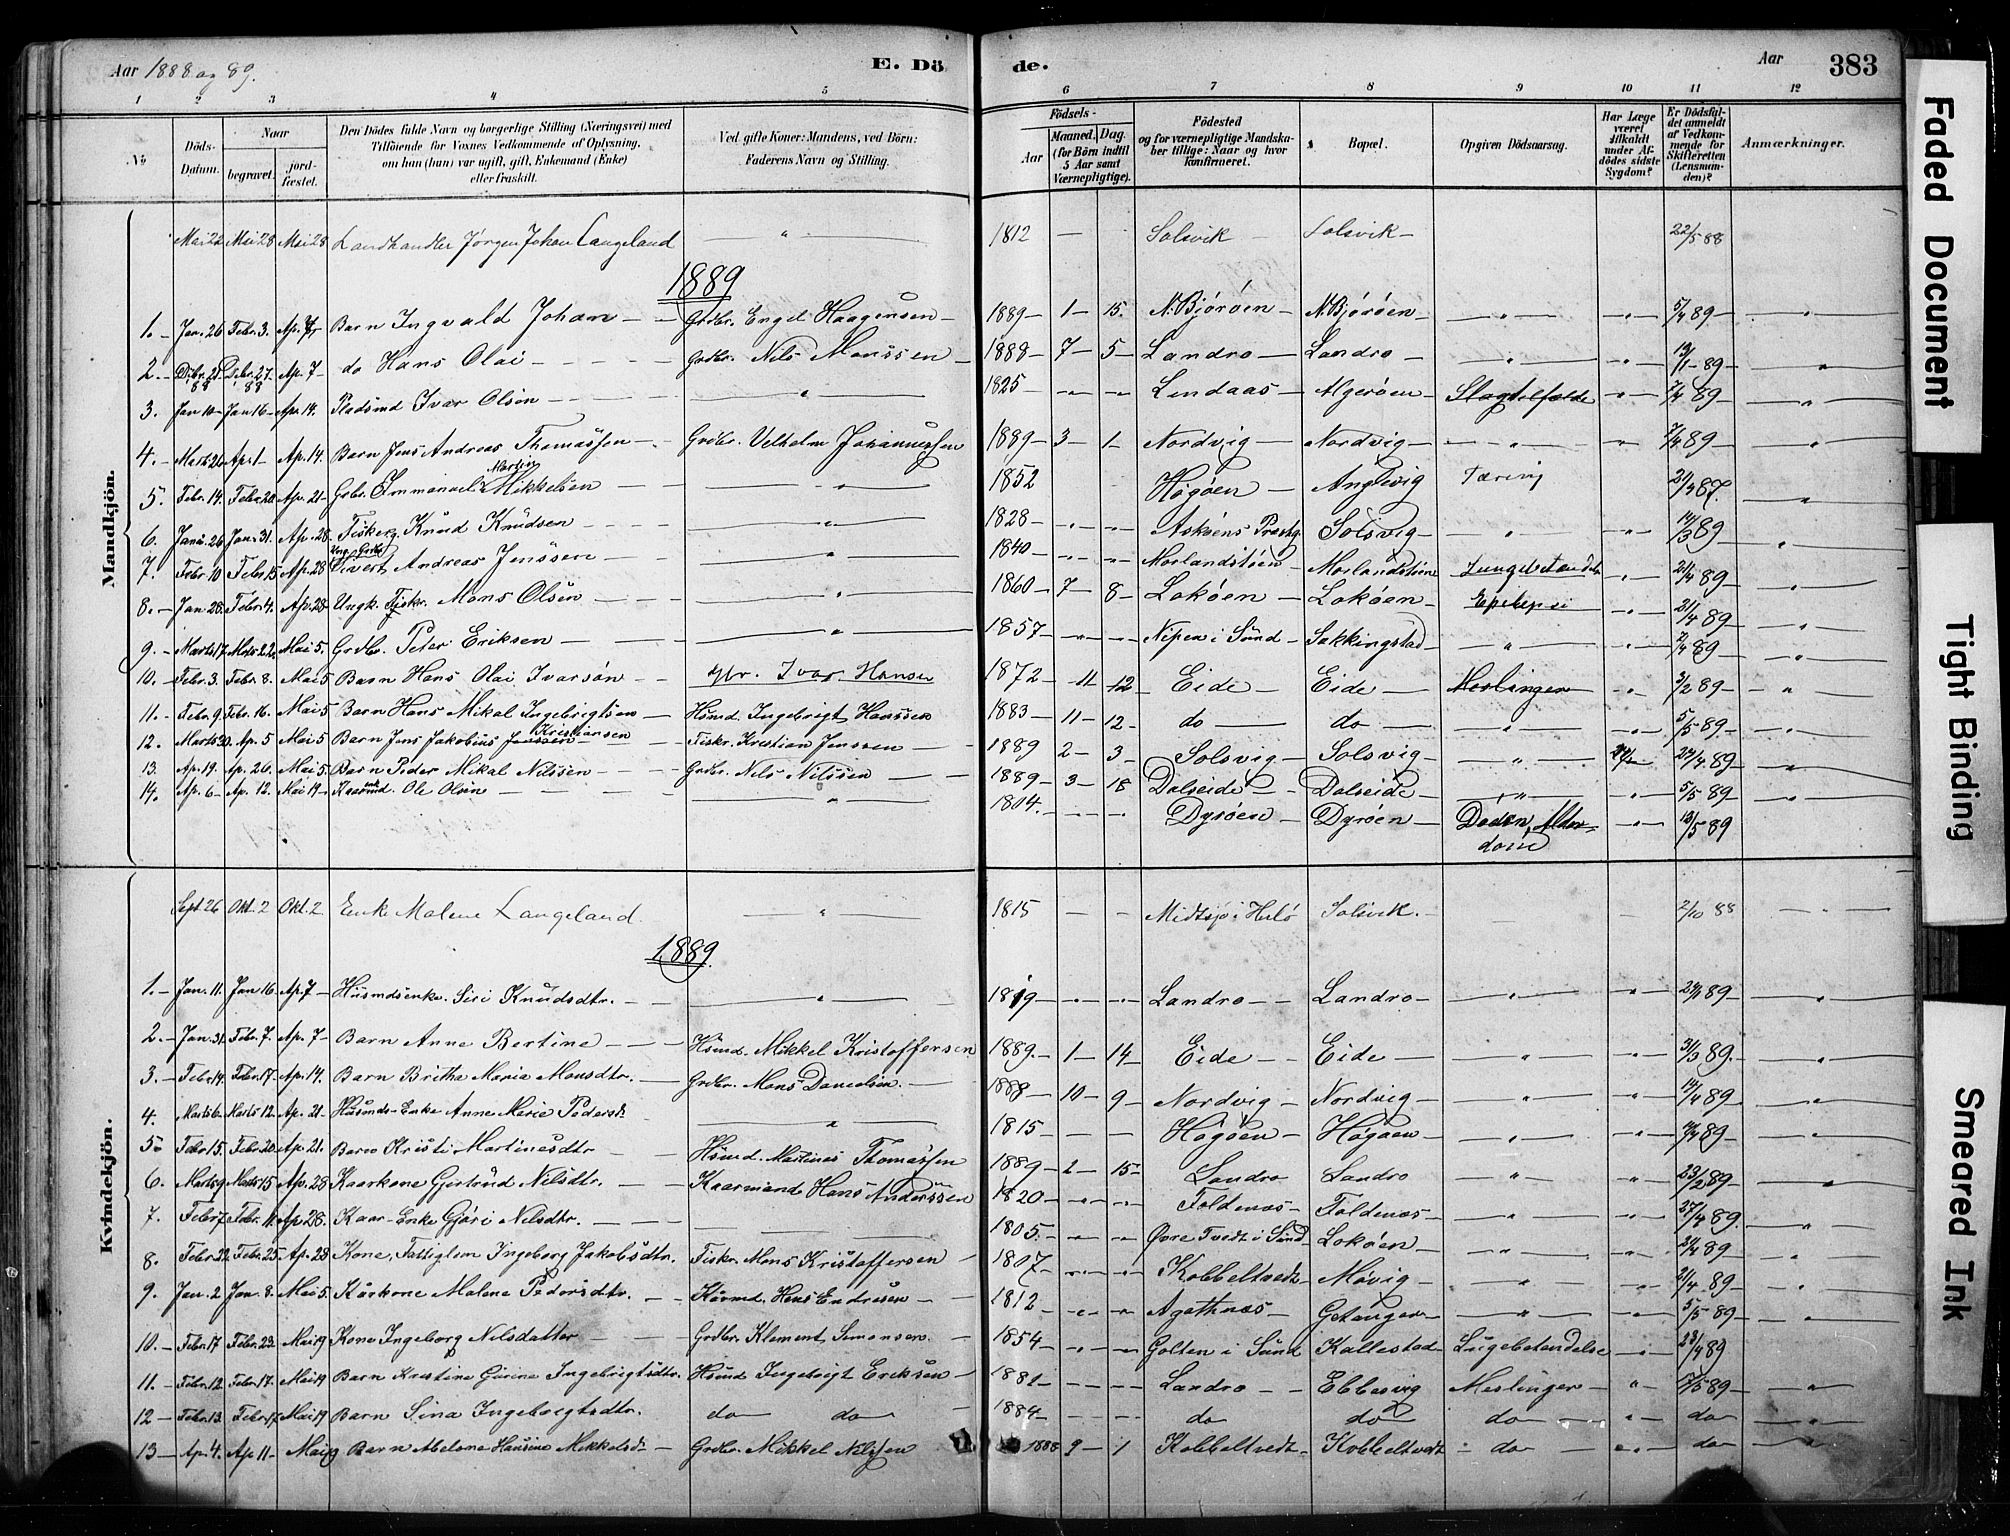 Aar 1888 og 89. E. Dö de. Aar 383
1 2 3 4 5 6 7 8 9 10 11 12
No
Döds-Datum.
Naar
begravet. jordfæstet.
Den Dödes fulde Navn og borgerlige Stilling (Næringsvei) med Tilföiende for Voxnes Vedkommende af Oplysning, om han (hun) var ugift, gift, Enkemand (Enke) eller fraskilt.
Ved gifte Koner: Mandens, ved Börn: Faderens Navn og Stilling.
Födsels-
Aar Maaned. Dag. (for Börn indtil 5 Aar samt Værnepligtige).
Födested og for værnepligtige Mandskaber tillige: Naar og hvor konfirmeret.
Bopæl.
Opgiven Dödsaarsag.
Har Læge været tilkaldt under Afdödes sidste Sygdom?
Er Dödsfaldet anmeldt af Vedkommende for Skifteretten (Lensmanden)?
Anmærkninger.
Mandkjön.
Mai 22 Mai 28 Mai 28 Landhandler Jørgen Johan Langeland " 1812 — Solsvik Solsvik — 22/5 88
1889
1. Jan. 26 Febr. 3. Ap. 7 Barn Ingvald Johan — Grdbr. Engel Haagensen — 1889 — 1 — 15. N. Bjørøen — N. Bjørøen — " " 5/4 89 — "
2. Debr. 21 88 Debr. 27 88 Ap. 7 — do Hans Olai — Grdbr. Nils Monssen — 1888 — 7 — 5 — Landro — Landro — " " 12/1 — 89 — "
3. Jan 10 — Jan 16 — Ap. 14. Ivar Olsen — " 1825 — " " Lindaas — Algerøen — " 7/4 89 — "
4. Marts 26 Ap. 1 — Ap. 14. Barn Jens Andreas Thomassen — Grdbr. Velhelm Johannessen 1889 — 3 — 1 — Nordvig — Nordvig — " " 7/4 89 — "
5. Febr. 14. Febr. 20 Ap. 21 — Emmanuel Martin Mikkelsen — " 1852 Høgøen — Anglevig Tæring 21/4 87 "
6. Janr. 26 Jan. 31. Ap. 28 Fisker Knud Knudsen — " 1828 — " " Askøens Præstg. Solsvig — " " 14/3 89 "
7. Febr. 10 Febr. 15 Ap. 28 Ung. Grdbr. Sivert Andreas Jenssen — " 1840 — " " Morlandstøen Morlandstøen " 21/4 89 — "
8. — Jan. 28. Febr. 4. Ap. 28 — Ungk. Fiskr. Mons Olsen — " 1860 — 7 — 8 — Lokøen — Lokøen — Epelepsi " 21/4 89 — "
9. — Marts 17. Marts 22. Mai 5. Grdbr. Peter Eriksen — " 1857 — " Nipen i Sund — Sekkingstad — " " 2/4 89 — "
10. Febr. 3. Febr. 8. Mai 5 Barn Hans Olai Ivarsøn — Ivar Hansen 1872 — 11 — 12 — Eide — Eide — Meslinger " 3/2 89 — "
11. Febr. 9. Febr. 16. Mai 5 — Barn Hans Mikal Ingebrigtsen — Hsmd. Ingebrigt Hanssen 1883 — 11 — 12 — do — do — " " 5/5 89 — "
12. Marts 30. Ap. 5 Mai 5 Barn Jens Jakobius Jenssen Kristiansen — Fiskr. Kristian Jenssen — 1889 2 — 3 — Solsvig — Solsvig — " 24/4 89 — "
13. Ap. 19. Ap. 26. Mai 5. Barn Peder Mikal Nilssen — Grdbr. Nils Nilssen — 1889 — 3 — 18 Dalseide — Dalseide — " " 5/5 89 — "
14. Ap. 6 — Ap. 12. Mai 19 — Kaarmd. Ole Olsen — " 1804. — Dyrøen — Dyrøen — Døden, Alderdom " 13/5 89
Kvindekjön.
Sept 26 Okt. 2 Okt. 2 Enke Malene Langeland. " 1815 — Midtsjø i Herlø Solsvik. — 2/10 88 "
1889.
1. — Jan. 11. Jan 16 — Ap. 7 — Husmdsenke. Siri Knudsdtr. — " 1819 — " " Landro — Landro — " " 21/1 89 — "
2. — Jan. 31. Febr. 7. Ap. 7 — Barn Anne Bertine — Hsmd. Mikkel Kristoffersen 1889. — 1 — 14 — Eide — Eide — " " 31/3 89. — "
3. — Febr. 14. Febr. 17 — Ap. 14. Barn Britha Maria Monsdtr. — Grdbr. Mons Danielsen. — 1888 — 10 — 9 — Nordvig — Nordvig — " " 14/4 89 — "
4. Marts 6 — Marts 12. Ap. 21 — Husmds-Enke Anne Marie Pedersdt. " 1815 — Høgøen — Høgøen — " " 89 — "
5. Febr. 15. Febr. 20 — Ap. 21. Barn Kristi Martinusdtr — Hsmd. Martines Thomassen 1889 — 2 — 15 — Landro Landro " " 23/2 89 — "
6. Marts 9 Marts 15 Ap. 28 Kaarkone Gjertrud Nilsdtr. — Kaarmand Hans Anderssen 1820 — " " Foldenæs — Foldenæs — " " 27/4 89. "
7. Febr 7 Febr. 11. Ap. 28. Kaar-Enke Gjøri Nilsdtr. — 1805. — " " Øvre Tvedt i Sund — Lokøen — " " 21/4 89 — "
8. Febr. 22. Febr. 25. Ap. 28 Kone, Fattiglem Ingeborg Jakobsdtr. Fiskr. Mons Kristoffersen — 1807 — " " Kobbeltvedt — Møvig — " " 21/4 89 — "
9. Jan. 2 Jan. 8. Mai 5. Kaarkone Malene Pedersdtr. — Kaarmd. Hans Endresen — 1812 — " " Agathnæs — Getanger — " " 5/5 89 — "
10. — Febr. 17 Febr. 23. Mai 19 Kone Ingeborg Nilsdatter — Grdbr. Klement Simonsen. — 1854 — " " Golten i Sund Kallestad — Lugebetendelse " 23/4 89
11. — Febr. 12 Febr. 17. Mai 19 Barn Kristine Gurine Ingebrigtsdtr. Hsmd Ingebrigt Eriksen — 1881 — Landro — Ebbesvig Meslinger — " 7/5 89 — "
12 — Febr. 13. Febr. 17 Mai 19 Barn Sina Ingebregtsdtr. do do — 1884 — do do do — " do "
13 — Ap. 4. Ap 11 — Mai 19 Barn Abelone Hansine Mikkelsdt — Grdbr. Mikkel Nilssen 1888 9 — 1 Kobbeltvedt — Kobbeltvedt — do — " do — "
Faded Document
Tight Binding
Smeared Ink